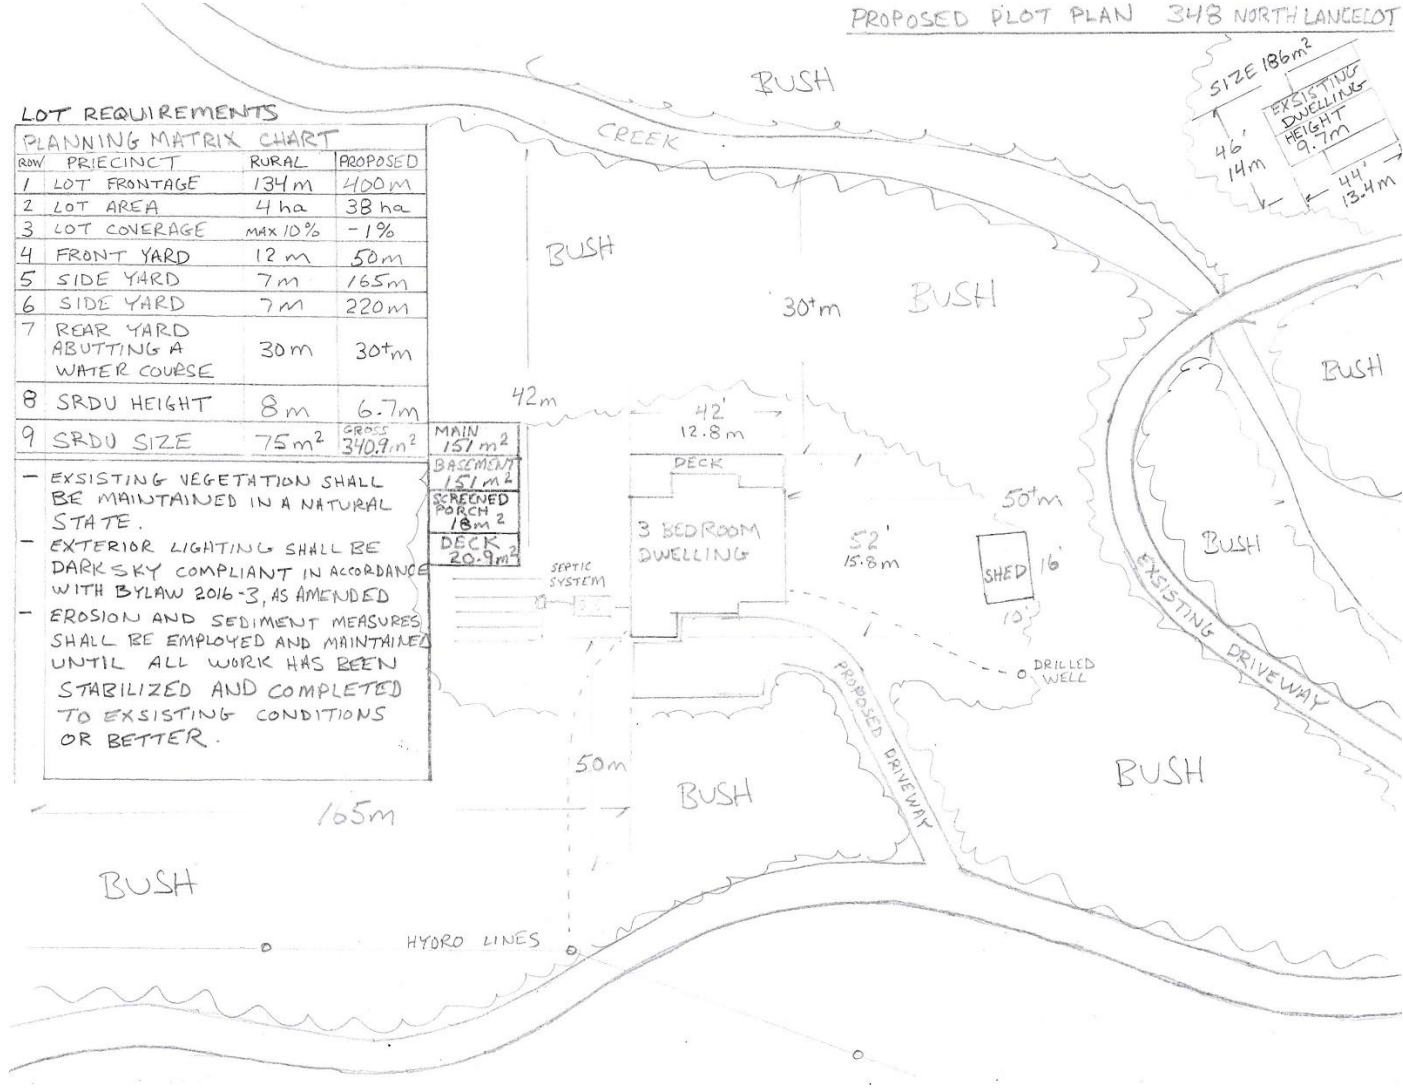 PROPOSED PLOT PLAN 348 NORTH LANCELOT
LOT REQUIREMENTS
PLANNING MATRIX CHART
ROW PRIECINCT RURAL PROPOSED
1 LOT FRONTAGE 134m 400m
2 LOT AREA 4 ha 38 ha
3 LOT COVERAGE MAX 10% -1%
4 FRONT YARD 12 m 50m
5 SIDE YARD 7m 165m
6 SIDE YARD 7m 220m
7 REAR YARD
ABUTTING A
WATER COURSE 30m 30+m
8 SRDU HEIGHT 8m 6.7m
9 SRDU SIZE 75m² GROSS 340.9m²
MAIN
151 m²
BASEMENT
151 m²
SCREENED
PORCH
18m²
DECK
20.9m²
- EXSISTING VEGETATION SHALL
BE MAINTAINED IN A NATURAL
STATE.
- EXTERIOR LIGHTING SHALL BE
DARK SKY COMPLIANT IN ACCORDANCE
WITH BYLAW 2016-3, AS AMENDED
- EROSION AND SEDIMENT MEASURES
SHALL BE EMPLOYED AND MAINTAINED
UNTIL ALL WORK HAS BEEN
STABILIZED AND COMPLETED
TO EXSISTING CONDITIONS
OR BETTER.
BUSH
CREEK
SIZE 186m²
EXSISTING
DWELLING
HEIGHT
9.7m
46'
14m
44'
13.4m
BUSH
30+m
BUSH
BUSH
42m
42'
12.8m
DECK
3 BEDROOM
DWELLING
52'
15.8m
50+m
SHED
16'
10'
BUSH
SEPTIC
SYSTEM
DRILLED
WELL
EXSISTING DRIVEWAY
PROPOSED DRIVEWAY
50m
BUSH
BUSH
165m
BUSH
HYDRO LINES